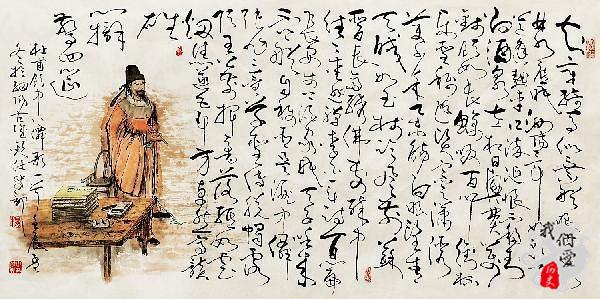 知章騎馬似乘船眼
花落井水底眠汝陽三斗
始朝天道逢麴車口流涎恨不移封
向酒泉左相日興費萬
錢飲如長鯨吸百川銜杯
樂聖稱避賢宗之瀟灑
美少年舉觴白眼望青
天皎如玉樹臨風前蘇
晉長齋繡佛前醉中
往往愛逃禪李白一斗詩百篇
長安市上酒家眠天子呼來
不上船自稱臣是酒中仙
張旭三杯草聖傳脫帽露
頂王公前揮毫落紙如雲
煙焦遂五斗方卓然高談
雄
辯
驚四筵
杜甫飲中八仙歌
我们爱
历史